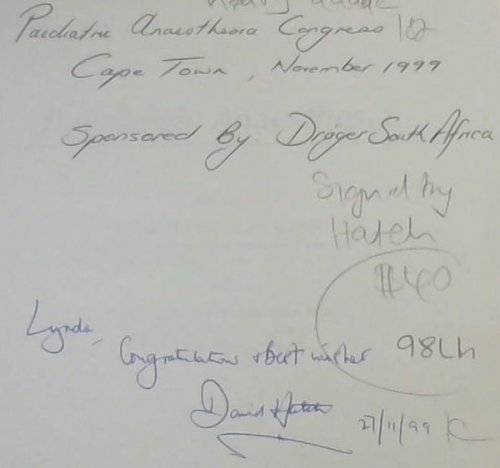 Paediatric Anaesthesia Congress
Cape Town, November 1999
Sponsored By Dräger South Africa
Signed by
Hatch
$40
Lynda,
Congratulations & best wishes
98Lh
David Hatch
27/11/99